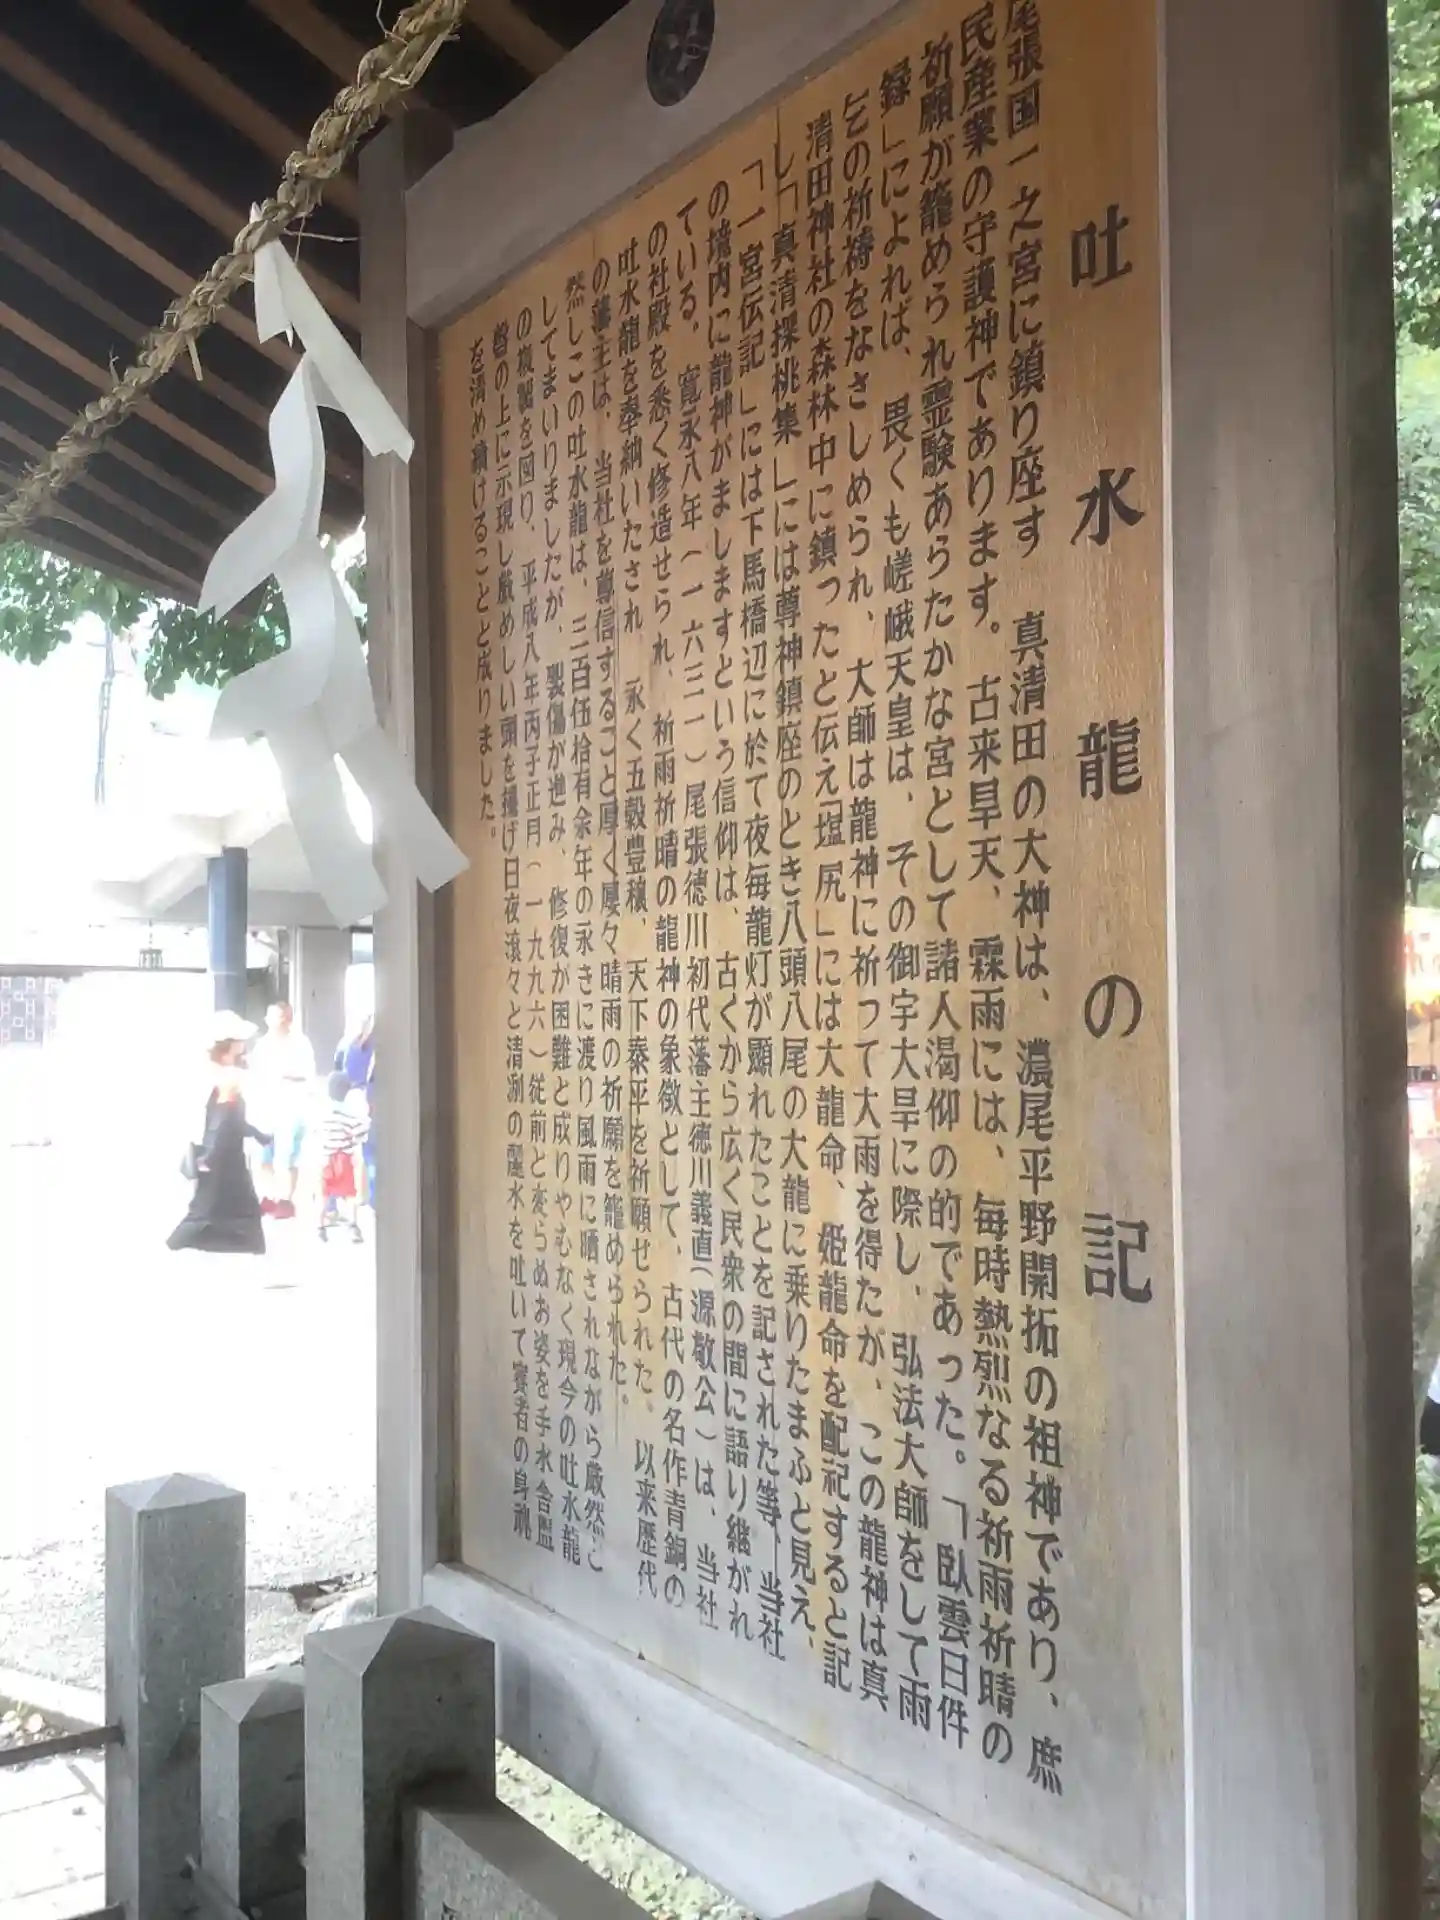 吐水龍の記
尾張国一之宮に鎮り座す　真清田の大神は、濃尾平野開拓の祖神であり、庶
民産業の守護神であります。古来旱天、霖雨には、毎時熱烈なる祈雨祈晴の
祈願が籠められ霊験あらたかな宮として諸人渇仰の的であった。「臥雲日件
録」によれば、畏くも嵯峨天皇は、その御宇大旱に際し、弘法大師をして雨
乞の祈祷をなさしめられ、大師は龍神に祈って大雨を得たが、この龍神は真
清田神社の森林中に鎮ったと伝え「塩尻」には大龍命、姫龍命を配祀すると記
し「真清探桃集」には尊神鎮座のとき八頭八尾の大龍に乗りたまふと見え、
「一宮伝記」には下馬橋辺に於て夜毎龍灯が顕れたことを記された等、当社
の境内に龍神がましますという信仰は、古くから広く民衆の間に語り継がれ
ている。寛永八年（一六三一）尾張徳川初代藩主徳川義直（源敬公）は、当社
の社殿を悉く修造せられ、祈雨祈晴の龍神の象徴として、古代の名作青銅の
吐水龍を奉納いたされ、永く五穀豊穣、天下泰平を祈願せられた。以来歴代
の藩主は、当社を尊信すること厚く屡々晴雨の祈願を籠められた。
然しこの吐水龍は、三百伍拾有余年の永きに渡り風雨に晒されながら厳然と
してまいりましたが、裂傷が進み、修復が困難と成りやむなく現今の吐水龍
の複製を図り、平成八年丙子正月（一九九六）従前と変らぬお姿を手水舎盥
磐の上に示現し厳めしい頭を擡げ日夜滾々と清冽の醴水を吐いて賽者の身魂
を清め続けることと成りました。